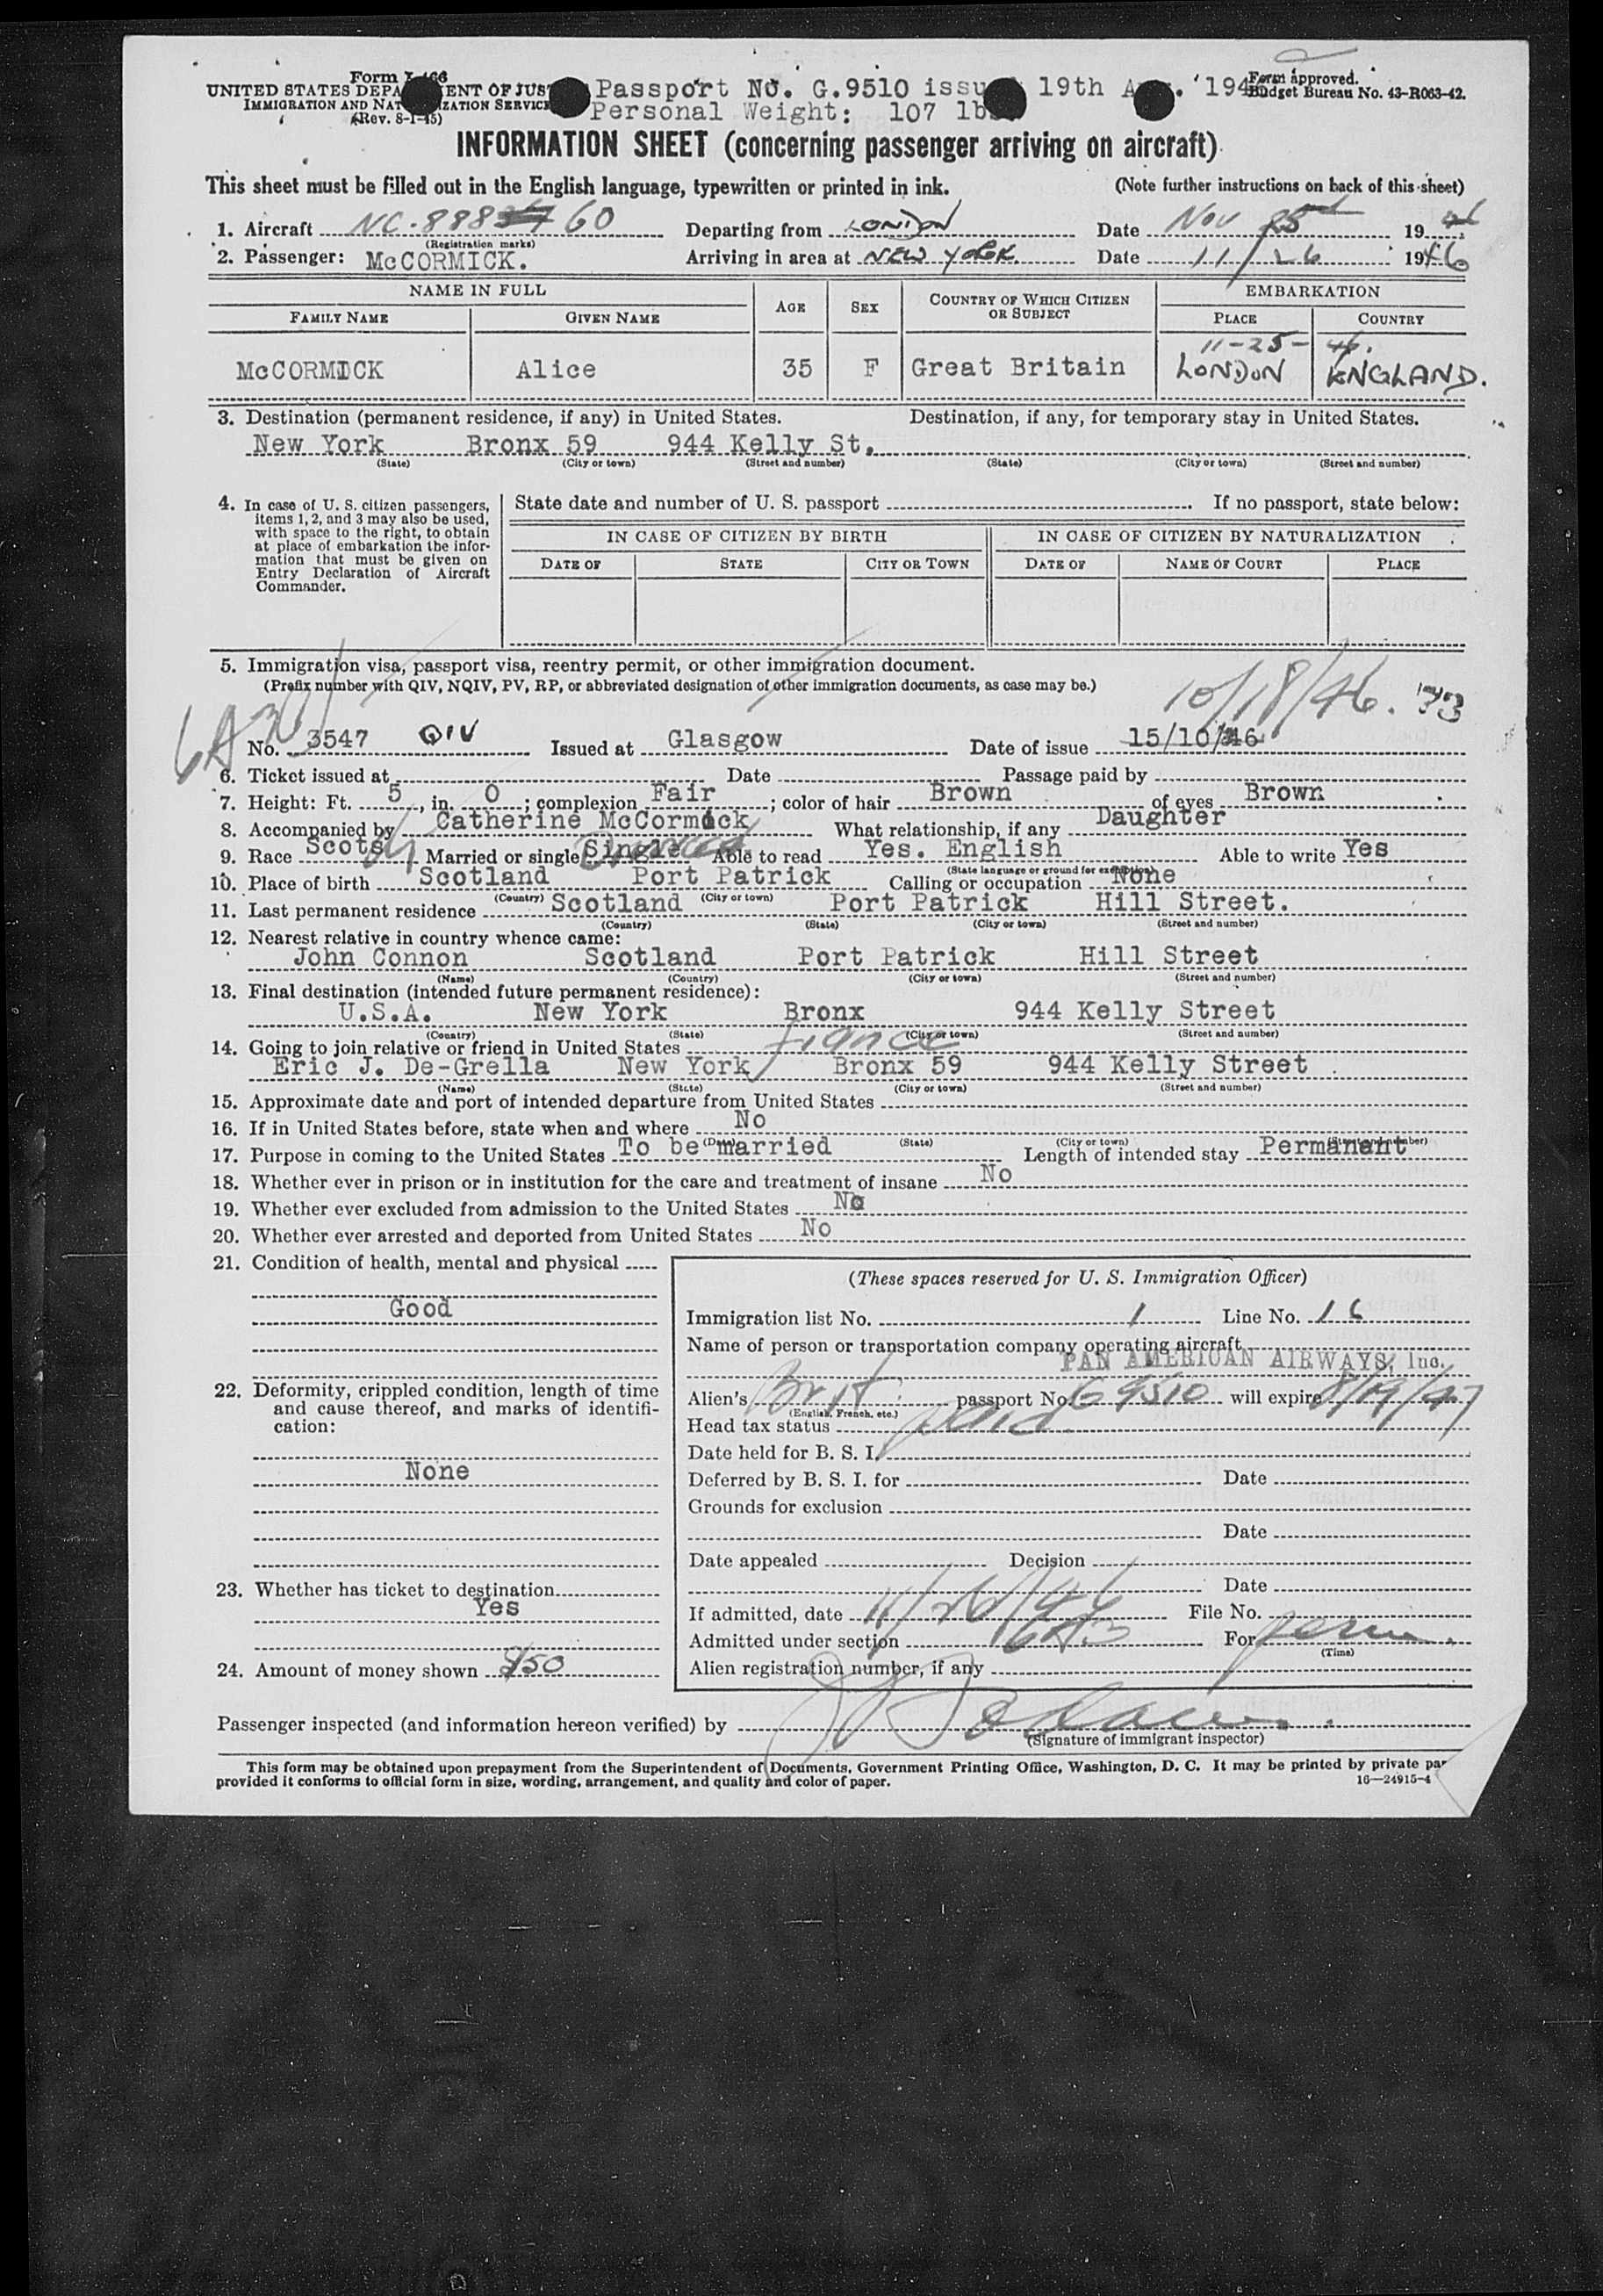 Form I-466
UNITED STATES DEPA ENT OF JUS Passport No. G.9510 issu 19th A . '194 Form approved.
IMMIGRATION AND NAT IZATION SERVICE Personal Weight: 107 lb Budget Bureau No. 43-R063-42.
(Rev. 8-1-45)
INFORMATION SHEET (concerning passenger arriving on aircraft)
This sheet must be filled out in the English language, typewritten or printed in ink. (Note further instructions on back of this sheet)
1. Aircraft NC-888 60 Departing from LONDON Date Nov 25 19 46
(Registration marks)
2. Passenger: McCORMICK. Arriving in area at NEW YORK Date 11/26 1946
NAME IN FULL AGE SEX COUNTRY OF WHICH CITIZEN OR SUBJECT EMBARKATION
FAMILY NAME GIVEN NAME PLACE COUNTRY
11-25-46.
McCORMICK Alice 35 F Great Britain LONDON ENGLAND.
3. Destination (permanent residence, if any) in United States. Destination, if any, for temporary stay in United States.
New York Bronx 59 944 Kelly St.
(State) (City or town) (Street and number) (State) (City or town) (Street and number)
4. In case of U. S. citizen passengers, items 1, 2, and 3 may also be used, with space to the right, to obtain at place of embarkation the information that must be given on Entry Declaration of Aircraft Commander.
State date and number of U. S. passport If no passport, state below:
IN CASE OF CITIZEN BY BIRTH IN CASE OF CITIZEN BY NATURALIZATION
DATE OF STATE CITY OR TOWN DATE OF NAME OF COURT PLACE
5. Immigration visa, passport visa, reentry permit, or other immigration document.
(Prefix number with QIV, NQIV, PV, RP, or abbreviated designation of other immigration documents, as case may be.)
10/18/46.
No. 3547 QIV Issued at Glasgow Date of issue 15/10/46
6. Ticket issued at Date Passage paid by
7. Height: Ft. 5, in. 0; complexion Fair; color of hair Brown of eyes Brown
8. Accompanied by Catherine McCormick What relationship, if any Daughter
9. Race Scots Married or single Single Divorced Able to read Yes. English Able to write Yes
(State language or ground for exemption)
10. Place of birth Scotland Port Patrick Calling or occupation None
(Country) (City or town)
11. Last permanent residence Scotland Port Patrick Hill Street.
(Country) (State) (City or town) (Street and number)
12. Nearest relative in country whence came:
John Connon Scotland Port Patrick Hill Street
(Name) (Country) (City or town) (Street and number)
13. Final destination (intended future permanent residence):
U.S.A. New York Bronx 944 Kelly Street
(Country) (State) (City or town) (Street and number)
14. Going to join relative or friend in United States fiance
Eric J. De-Grella New York Bronx 59 944 Kelly Street
(Name) (State) (City or town) (Street and number)
15. Approximate date and port of intended departure from United States
16. If in United States before, state when and where No
(Date) (State) (City or town) (Street and number)
17. Purpose in coming to the United States To be married Length of intended stay Permanant
18. Whether ever in prison or in institution for the care and treatment of insane No
19. Whether ever excluded from admission to the United States No
20. Whether ever arrested and deported from United States No
21. Condition of health, mental and physical
Good
22. Deformity, crippled condition, length of time and cause thereof, and marks of identification:
None
23. Whether has ticket to destination
Yes
24. Amount of money shown $50
(These spaces reserved for U. S. Immigration Officer)
Immigration list No. 1 Line No. 16
Name of person or transportation company operating aircraft
PAN AMERICAN AIRWAYS, Inc.
Alien's Brit. passport No. G 9510 will expire 8/19/47
(English, French, etc.)
Head tax status paid
Date held for B. S. I.
Deferred by B. S. I. for Date
Grounds for exclusion
Date
Date appealed Decision
Date
If admitted, date 11/26/46 File No.
Admitted under section 6A3 For perm.
(Time)
Alien registration number, if any
Passenger inspected (and information hereon verified) by
(Signature of immigrant inspector)
This form may be obtained upon prepayment from the Superintendent of Documents, Government Printing Office, Washington, D. C. It may be printed by private par
provided it conforms to official form in size, wording, arrangement, and quality and color of paper. 16—24915-4